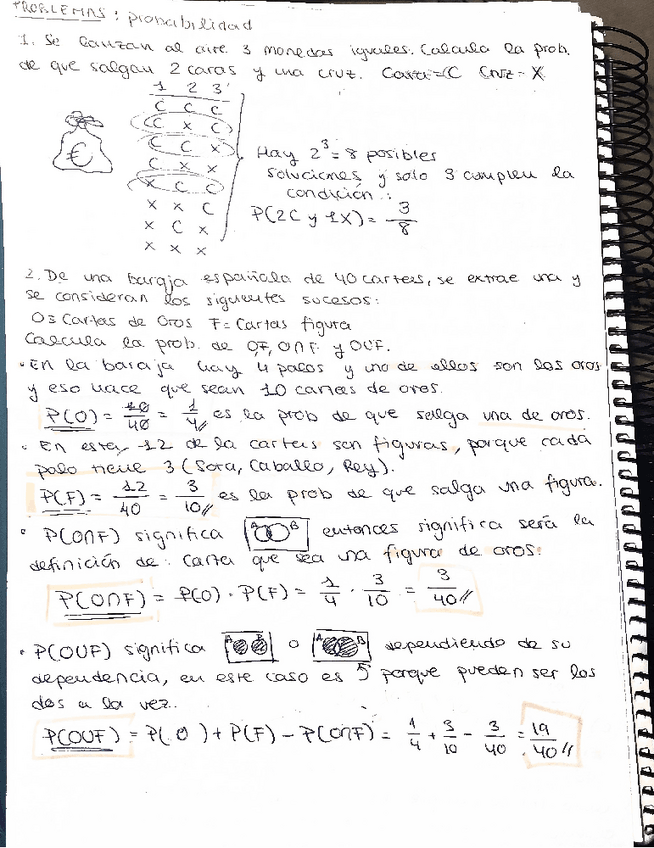 PROBLEMAS: probabilidad
1. Se lanzan al aire 3 monedas iguales. Calcula la prob.
de que salgan 2 caras y una cruz. Cara=C Cruz=X
1 2 3
C C C
C X C
C C X
C X X
X C C
X X C
X C X
X X X
€
Hay 2³=8 posibles
soluciones y solo 3 cumplen la
condición:
P(2C y 1X)= 3/8
2. De una baraja española de 40 cartas, se extrae una y
se consideran los siguientes sucesos:
O= Cartas de Oros F= Cartas figura
Calcula la prob. de O,F, O∩F y OUF.
• En la baraja hay 4 palos y uno de ellos son los oros
y eso hace que sean 10 cartas de oros.
P(O)= 10/40 = 1/4 es la prob de que salga una de oros.
• En esta, 12 de la cartas son figuras, porque cada
palo tiene 3 (Sota, Caballo, Rey).
P(F)= 12/40 = 3/10 es la prob de que salga una figura.
• P(O∩F) significa A B entonces significa será la
definición de: Carta que sea una figura de oros:
P(O∩F) = P(O) · P(F) = 1/4 · 3/10 = 3/40
• P(OUF) significa A B o A B dependiendo de su
dependencia, en este caso es 5 porque pueden ser los
dos a la vez.
P(OUF) = P(O) + P(F) - P(O∩F) = 1/4 + 3/10 - 3/40 = 19/40